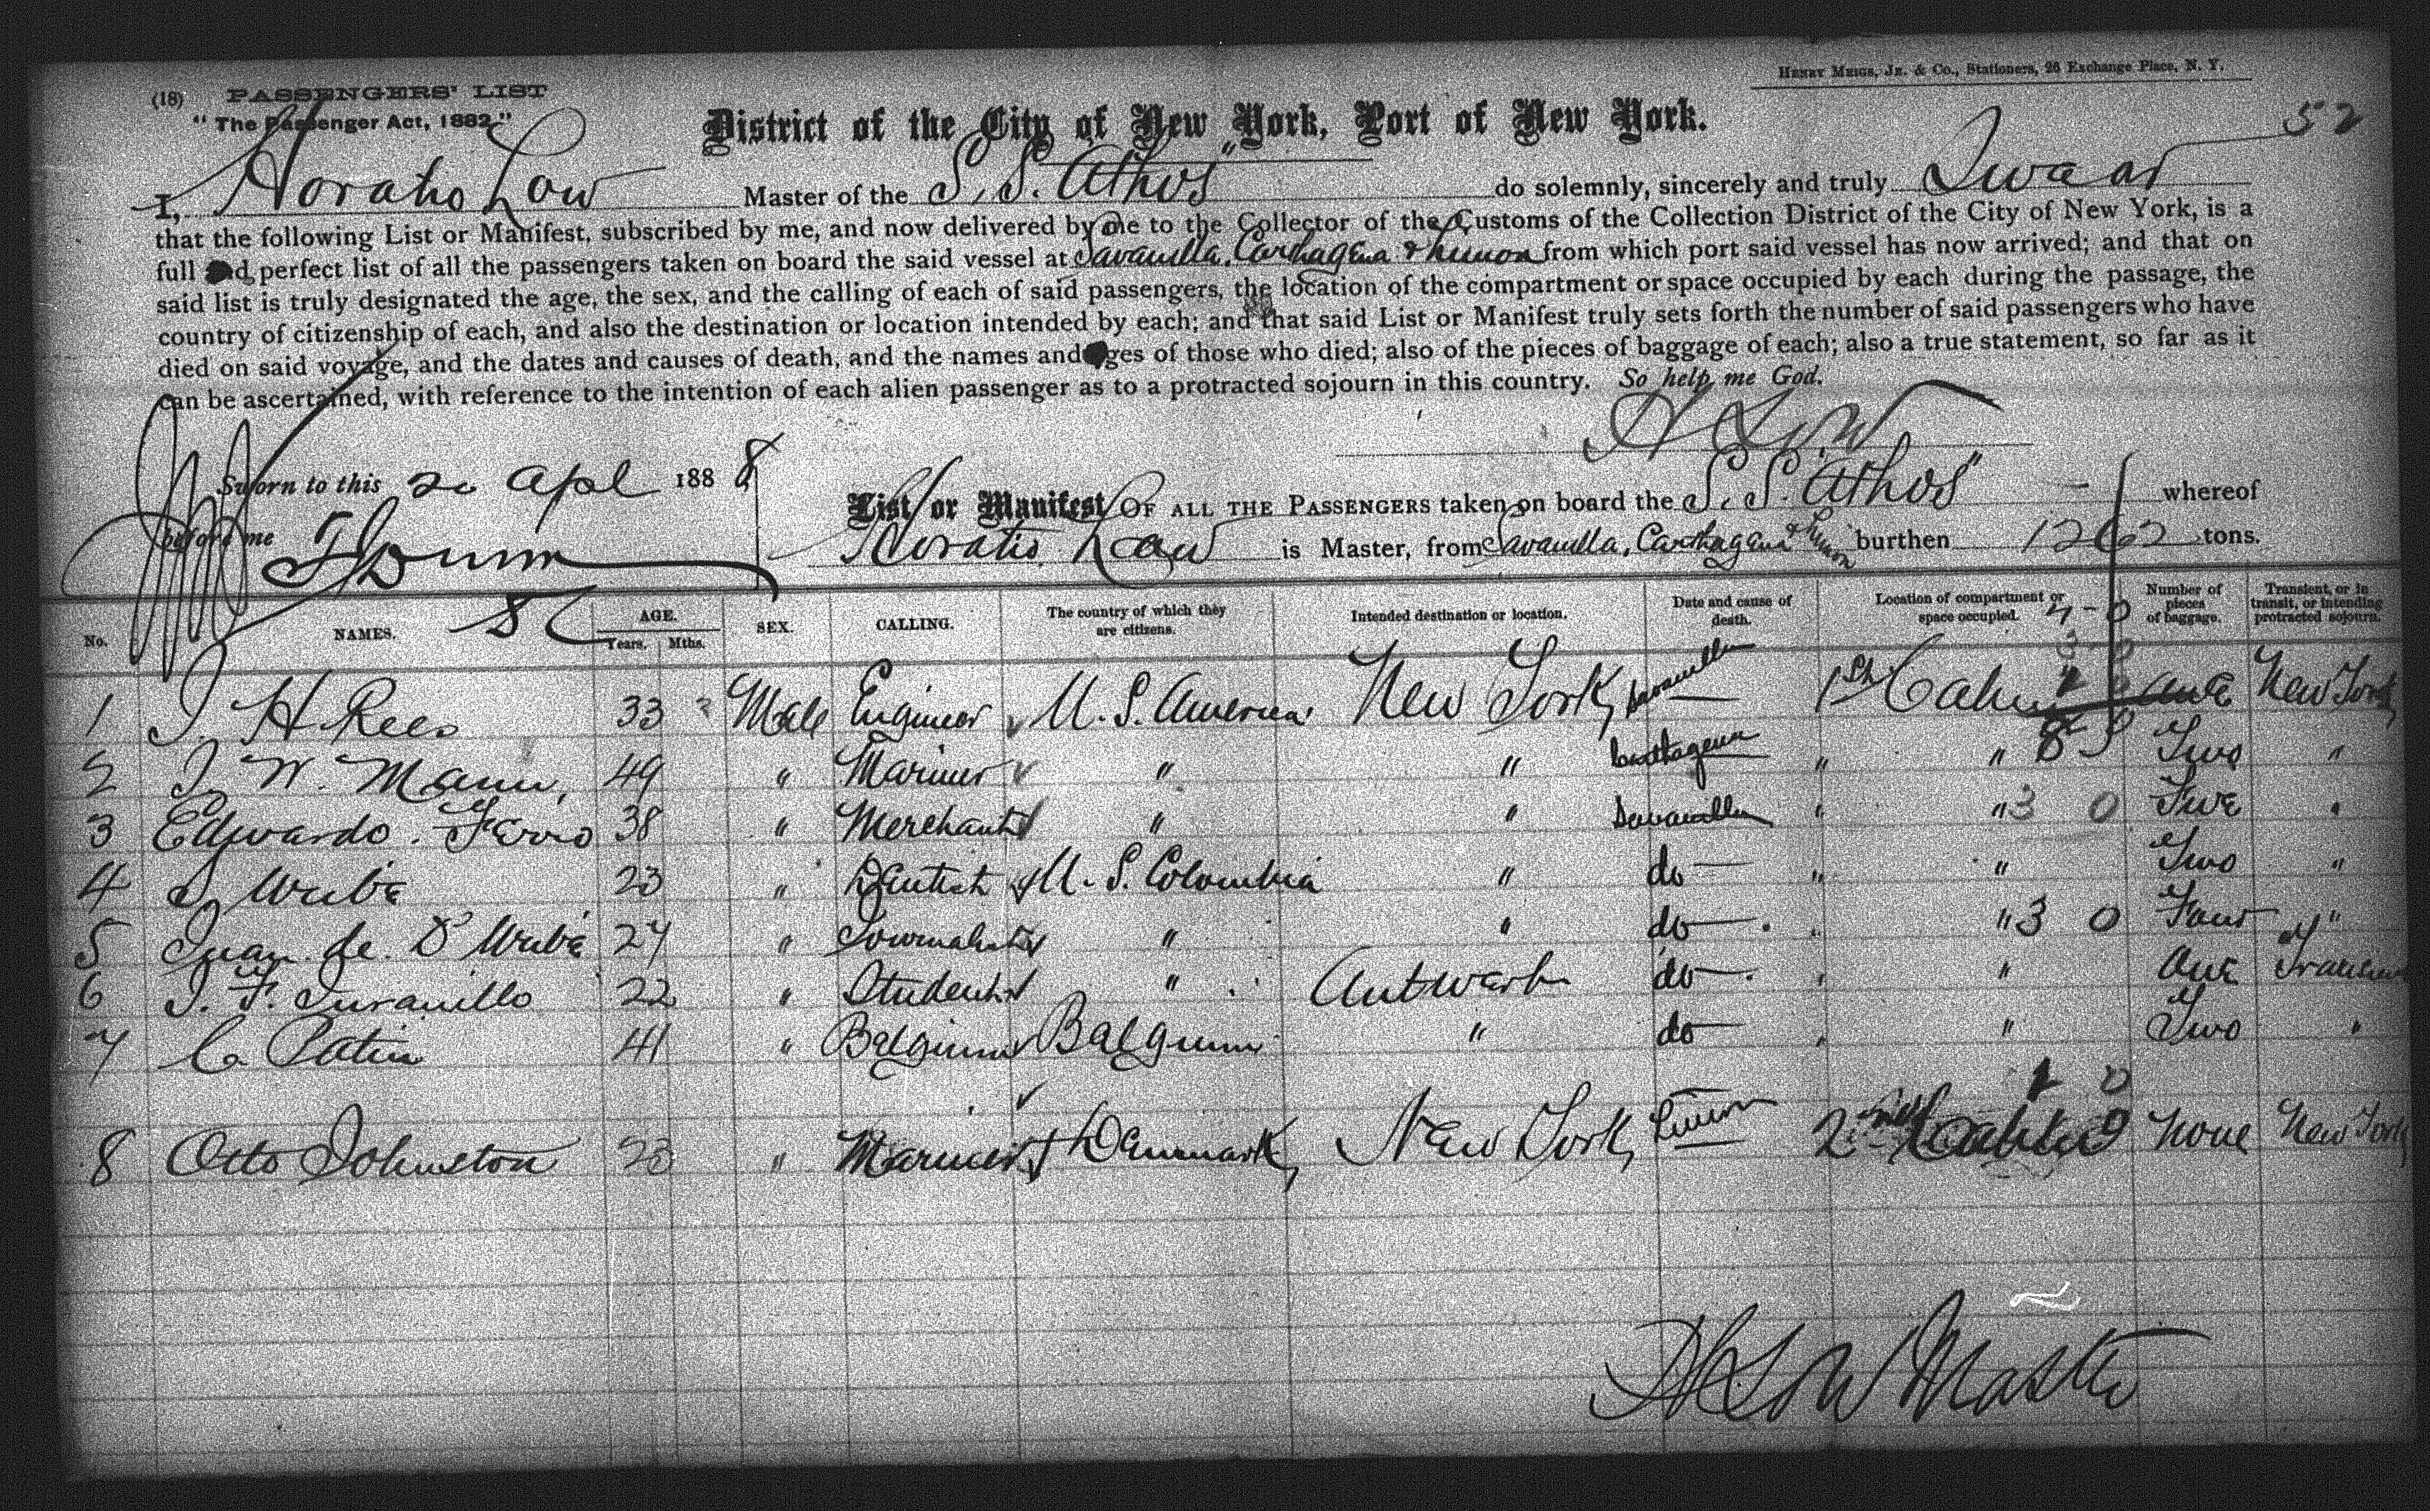 (18) PASSENGERS' LIST
HENRY MEIGS, JR. & CO., Stationers, 26 Exchange Place, N. Y.
"The Passenger Act, 1882,"
District of the City of New York, Port of New York.
52
I, Horatio Low Master of the S. S. "Athos" do solemnly, sincerely and truly Swear
that the following List or Manifest, subscribed by me, and now delivered by me to the Collector of the Customs of the Collection District of the City of New York, is a
full and perfect list of all the passengers taken on board the said vessel at Savanilla, Carthagena & Limon from which port said vessel has now arrived; and that on
said list is truly designated the age, the sex, and the calling of each of said passengers, the location of the compartment or space occupied by each during the passage, the
country of citizenship of each, and also the destination or location intended by each; and that said List or Manifest truly sets forth the number of said passengers who have
died on said voyage, and the dates and causes of death, and the names and ages of those who died; also of the pieces of baggage of each; also a true statement, so far as it
can be ascertained, with reference to the intention of each alien passenger as to a protracted sojourn in this country. So help me God.
H Low
Sworn to this 20 Apl 1888
before me
List or Manifest OF ALL THE PASSENGERS taken on board the S. S. "Athos" whereof
Horatio Low is Master, from Savanilla, Carthagena & Limon burthen 1262 tons.
No. NAMES. AGE. Years. Mths. SEX. CALLING. The country of which they are citizens. Intended destination or location. Date and cause of death. Location of compartment or space occupied. Number of pieces of baggage. Transient, or in transit, or intending protracted sojourn.
1 J. H Rees 33 Male Engineer U. S. America New York, Savanilla 1st Cabin One New York
2 J. W. Mann, 49 " Mariner " " Carthagena " " Two "
3 Edwardo. Ferro 38 " Merchant " " Savanilla " " 3 0 Five "
4 S Uribe 23 " Dentist U. S. Colombia " do " " Two "
5 Juan de D Uribe 27 " Journalist " " do " " 3 0 Four "
6 J. F. Juranillo 22 " Student " Antwarb do " " One Transient
7 C Patin 41 " Balgium Balgium " do " " Two "
8 Otto Johnston 23 " Mariner Denmark, New York, Limon 2nd Cabin None New York
H Low Master